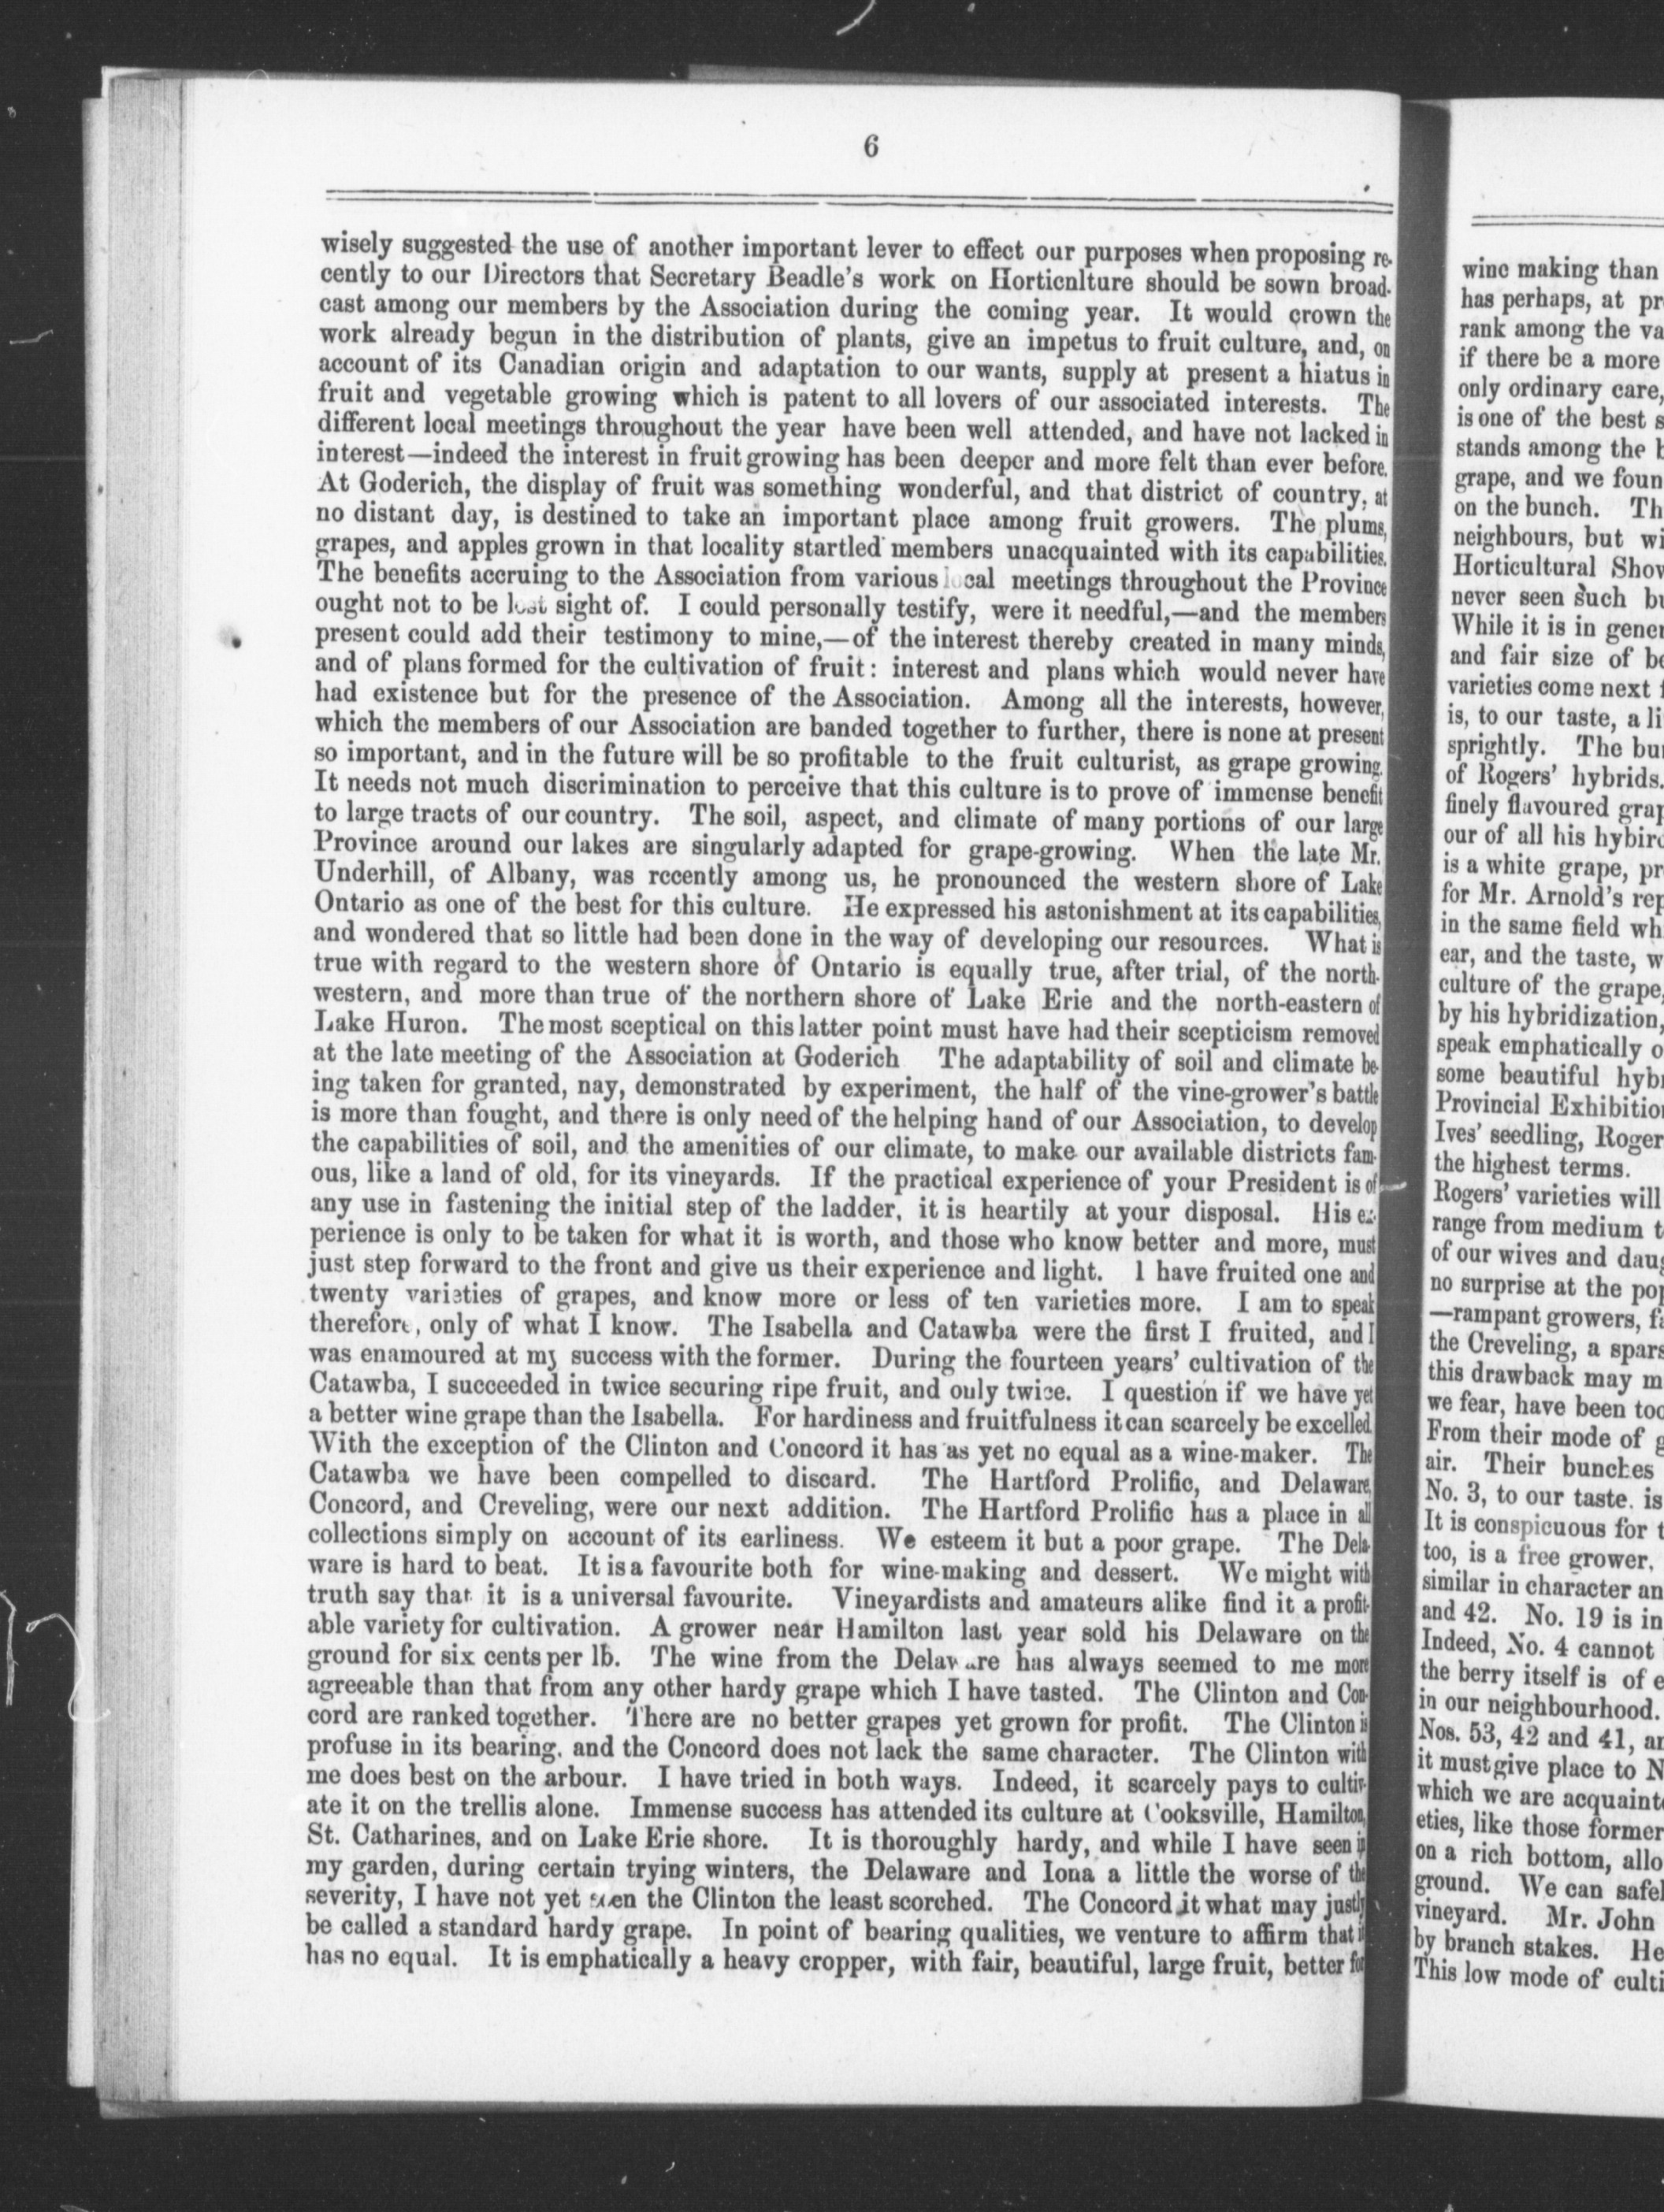 6
wisely suggested the use of another important lever to effect our purposes when proposing re-
cently to our Directors that Secretary Beadle's work on Horticnlture should be sown broad-
cast among our members by the Association during the coming year. It would crown the
work already begun in the distribution of plants, give an impetus to fruit culture, and, on
account of its Canadian origin and adaptation to our wants, supply at present a hiatus in
fruit and vegetable growing which is patent to all lovers of our associated interests. The
different local meetings throughout the year have been well attended, and have not lacked in
interest—indeed the interest in fruit growing has been deeper and more felt than ever before.
At Goderich, the display of fruit was something wonderful, and that district of country, at
no distant day, is destined to take an important place among fruit growers. The plums,
grapes, and apples grown in that locality startled members unacquainted with its capabilities.
The benefits accruing to the Association from various local meetings throughout the Province
ought not to be lost sight of. I could personally testify, were it needful,—and the members
present could add their testimony to mine,—of the interest thereby created in many minds,
and of plans formed for the cultivation of fruit: interest and plans which would never have
had existence but for the presence of the Association. Among all the interests, however,
which the members of our Association are banded together to further, there is none at present
so important, and in the future will be so profitable to the fruit culturist, as grape growing.
It needs not much discrimination to perceive that this culture is to prove of immense benefit
to large tracts of our country. The soil, aspect, and climate of many portions of our large
Province around our lakes are singularly adapted for grape-growing. When the late Mr.
Underhill, of Albany, was recently among us, he pronounced the western shore of Lake
Ontario as one of the best for this culture. He expressed his astonishment at its capabilities,
and wondered that so little had been done in the way of developing our resources. What is
true with regard to the western shore of Ontario is equally true, after trial, of the north-
western, and more than true of the northern shore of Lake Erie and the north-eastern of
Lake Huron. The most sceptical on this latter point must have had their scepticism removed
at the late meeting of the Association at Goderich The adaptability of soil and climate be-
ing taken for granted, nay, demonstrated by experiment, the half of the vine-grower's battle
is more than fought, and there is only need of the helping hand of our Association, to develop
the capabilities of soil, and the amenities of our climate, to make our available districts fam-
ous, like a land of old, for its vineyards. If the practical experience of your President is of
any use in fastening the initial step of the ladder, it is heartily at your disposal. His ex-
perience is only to be taken for what it is worth, and those who know better and more, must
just step forward to the front and give us their experience and light. I have fruited one and
twenty varieties of grapes, and know more or less of ten varieties more. I am to speak
therefore, only of what I know. The Isabella and Catawba were the first I fruited, and I
was enamoured at my success with the former. During the fourteen years' cultivation of the
Catawba, I succeeded in twice securing ripe fruit, and only twice. I question if we have yet
a better wine grape than the Isabella. For hardiness and fruitfulness it can scarcely be excelled.
With the exception of the Clinton and Concord it has as yet no equal as a wine-maker. The
Catawba we have been compelled to discard. The Hartford Prolific, and Delaware,
Concord, and Creveling, were our next addition. The Hartford Prolific has a place in all
collections simply on account of its earliness. We esteem it but a poor grape. The Dela-
ware is hard to beat. It is a favourite both for wine-making and dessert. We might with
truth say that it is a universal favourite. Vineyardists and amateurs alike find it a profit-
able variety for cultivation. A grower near Hamilton last year sold his Delaware on the
ground for six cents per lb. The wine from the Delaware has always seemed to me more
agreeable than that from any other hardy grape which I have tasted. The Clinton and Con-
cord are ranked together. There are no better grapes yet grown for profit. The Clinton is
profuse in its bearing, and the Concord does not lack the same character. The Clinton with
me does best on the arbour. I have tried in both ways. Indeed, it scarcely pays to cultiv-
ate it on the trellis alone. Immense success has attended its culture at Cooksville, Hamilton,
St. Catharines, and on Lake Erie shore. It is thoroughly hardy, and while I have seen in
my garden, during certain trying winters, the Delaware and Iona a little the worse of the
severity, I have not yet seen the Clinton the least scorched. The Concord it what may justly
be called a standard hardy grape. In point of bearing qualities, we venture to affirm that it
has no equal. It is emphatically a heavy cropper, with fair, beautiful, large fruit, better for
wine making than
has perhaps, at
rank among the
if there be a more
only ordinary care,
is one of the best
stands among the
grape, and we
on the bunch.
neighbours, but
Horticultural
never seen such
While it is in
and fair size of
varieties come next
is, to our taste, a
sprightly. The
of Rogers' hybrids.
finely flavoured
our of all his
is a white grape,
for Mr. Arnold's
in the same field
ear, and the taste,
culture of the grape,
by his hybridization,
speak emphatically
some beautiful
Provincial
Ives' seedling,
the highest terms.
Rogers' varieties will
range from medium
of our wives and
no surprise at the
—rampant growers,
the Creveling, a
this drawback may
we fear, have been
From their mode of
air. Their bunches
No. 3, to our taste. is
It is conspicuous for
too, is a free grower.
similar in character
and 42. No. 19 is
Indeed, No. 4 cannot
the berry itself is of
in our neighbourhood.
Nos. 53, 42 and 41,
it must give place to
which we are
eties, like those
on a rich bottom,
ground. We can
vineyard. Mr. John
by branch stakes. He
This low mode of